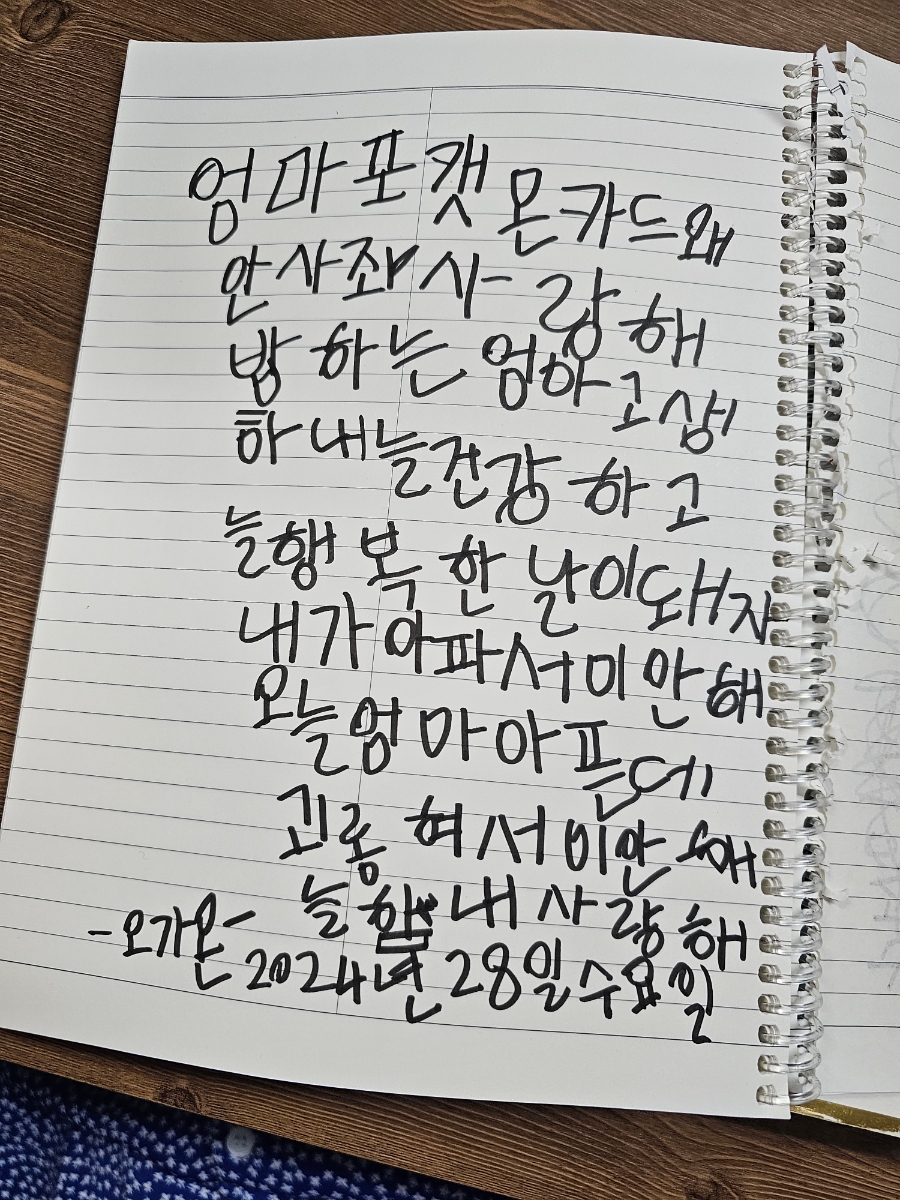 엄마포캣몬카드왜
안사좌사랑해
밤하는엄마고생
하내늘건강하고
늘행복한날이돼자
내가아파서미안해
오늘엄마아픈데
괴롱혀서미안해
늘함내사랑해
-오가온-
2024년28일수요일